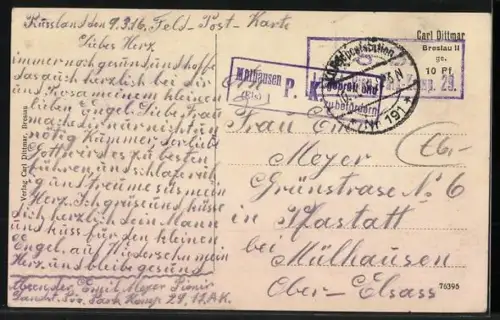 Russland den 9.3.16. Feld-Post-Karte
Liebes Herz.
immer noch gesund und hoffe
das auch herzlich bei dir
und Rosa meinem kleinen
lieben Engel. Liebe Frau
mach dir nur nicht un
nötig Kummer, der liebe
Gott wird es zu besten
führen, und schlafe ruh
ig und treume süs mein
Herz. Ich grüse und küsse
dich herzlich dein Mann
und küss für den kleinen
Engel, auf Wiedersehn mein
Herz, und bleibe gesund
Absender Emil Meyer Pionir
Park Komp. 29, 12. A.K.
Verlag Carl Dittmar, Breslau
Carl Dittmar
Breslau II
10 Pf.
Mülhausen
(Els)
P. K.
Geprüft und
zu befördern
Nr 191
29.
Frau Emil
Meyer
Grünstrase No 6
in Pfastatt
bei
Mülhausen
Ober-Elsass
76395